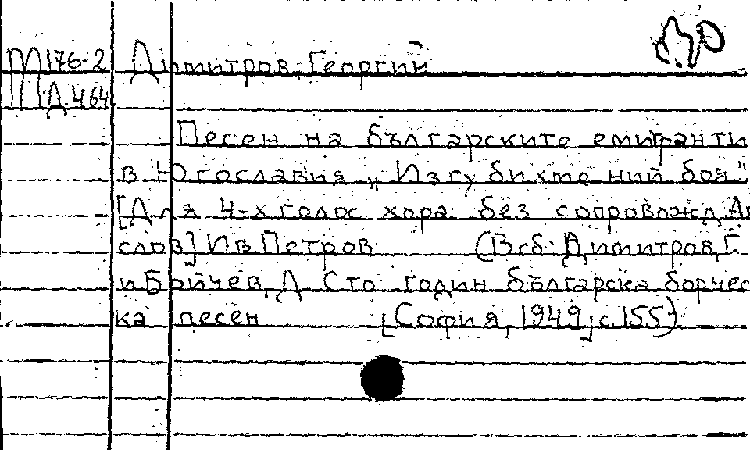 М176-2 Димитров, Георгий
ПД 464
Песен на българските емигранти
в Югославия „Изгубихте ний боя"
[Для 4-х голос хора без сопровожд Ав
слов] Ив Петров (В сб: Димитров, Г.
и Бойчев, Д Сто годин българска борчес
ка песен [София, 1949, с. 155)